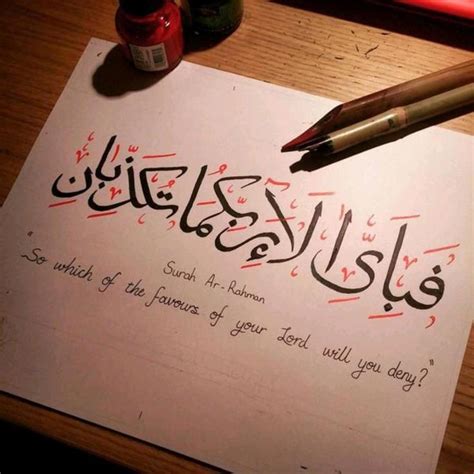 فَبِأَيِّ اٰلَآءِ رَبِّكُمَا تُكَذِّبَانِ
Surah Ar-Rahman
"So which of the favours of your Lord will you deny?"